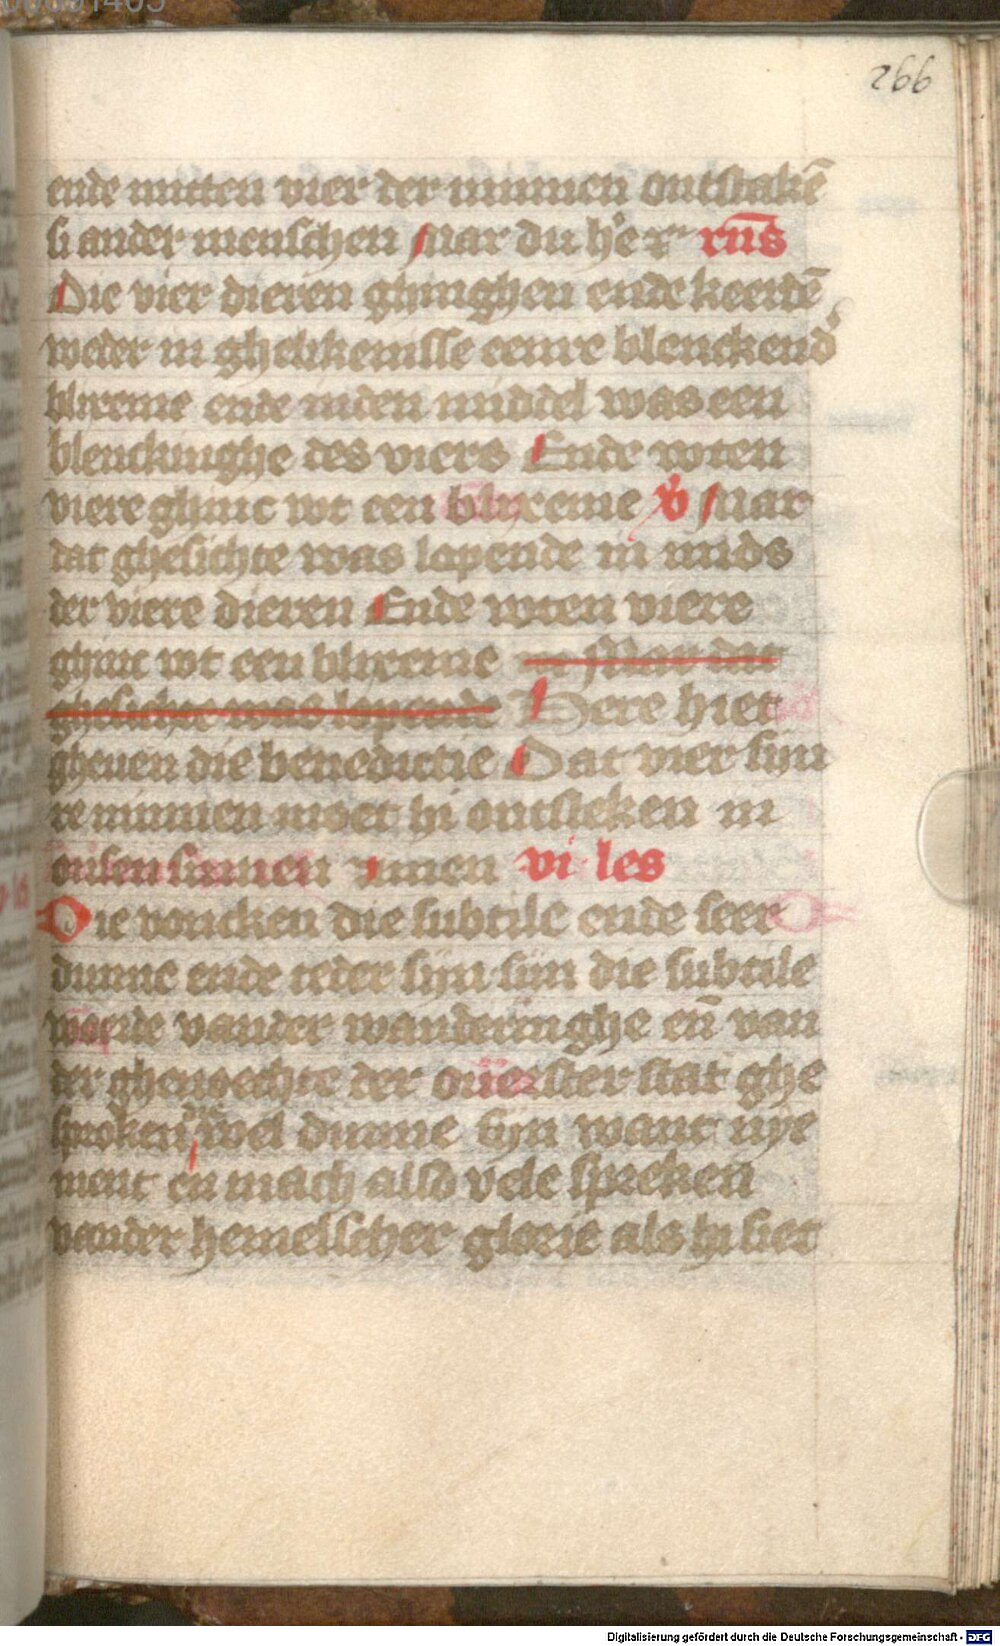 266
ende mitten vier der minnen ontstakē
si ander menschen Mar du he’ r̄ rn̄s
Die vier dieren ghinghen ende keerdē
weder in ghelikenisse eenre blenckend’
blixeme ende inden middel was een
blenckinghe des viers Ende wten
viere ghinc wt een blixeme v̄ Mar
dat ghesichte was lopende in mids
der viere dieren Ende wten viere
ghinc wt een blixeme
ghesichte was lopende Here hiet
gheuen die benedictie Dat vier sijn
re minnen moet hi ontsteken in
onsen sinnen Amen vi les
Die voncken die subtile ende seer
dunne ende teder sijn sijn die subtile
woerde vander wanderinghe en̄ van
der ghenoechte der ouerster stat ghe
sproken die wel dunne sijn want nye
ment en mach also vele spreken
vander hemelscher glorie als hi siet
Digitalisierung gefördert durch die Deutsche Forschungsgemeinschaft - DFG